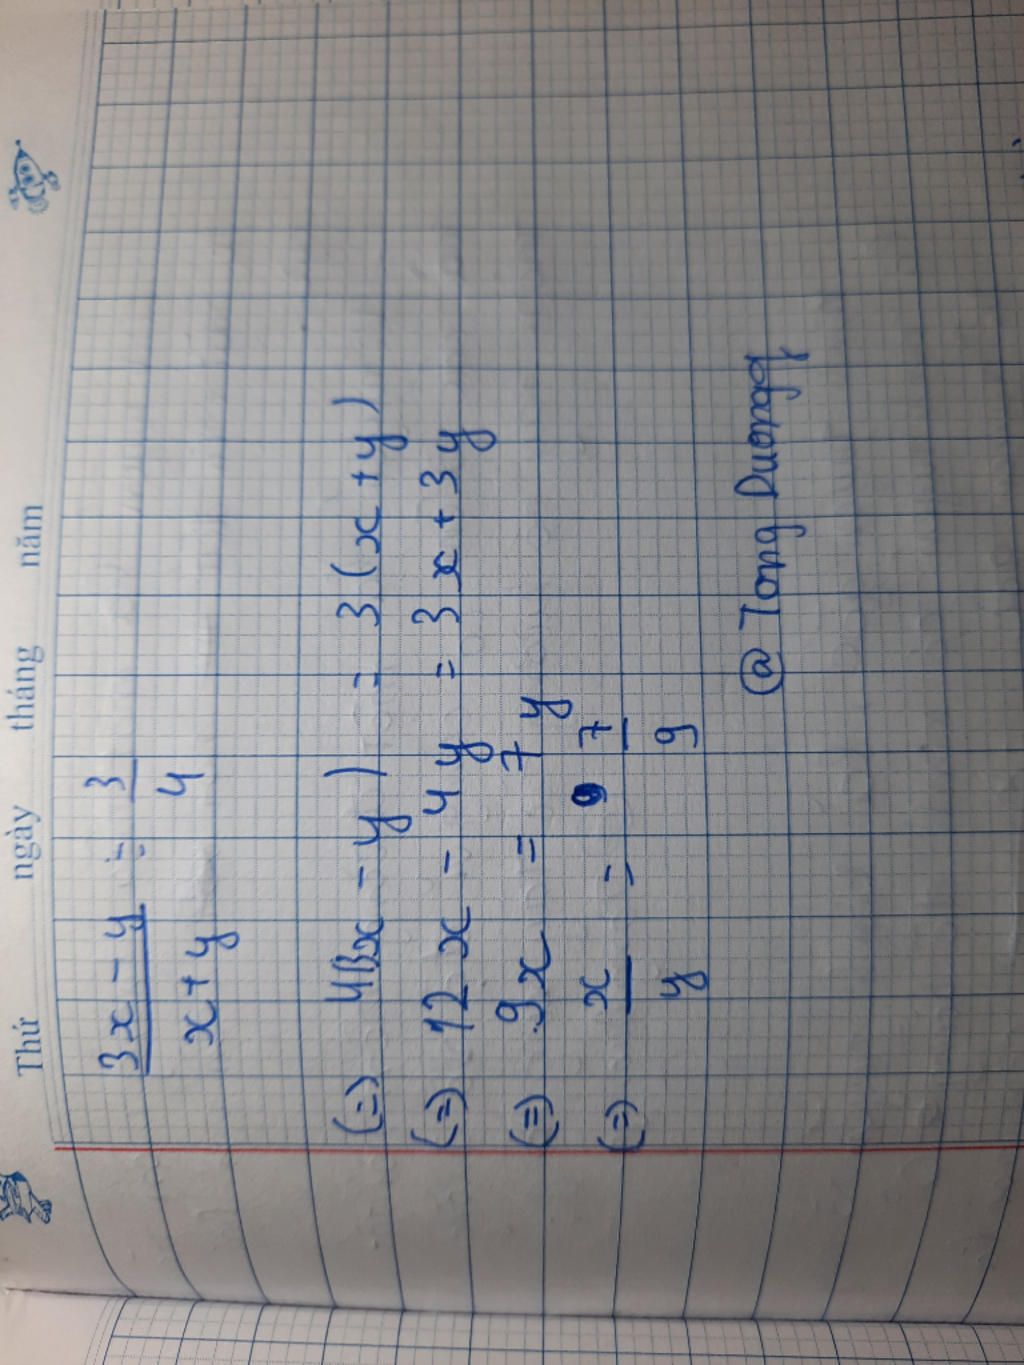 Thứ ngày tháng năm
3x - y = 3
x + y 4
(=) 4(3x - y) = 3(x + y)
(=) 12x - 4y = 3x + 3y
(=) 9x = 7y
(=) x = 7
y 9
@ Tong Duongg